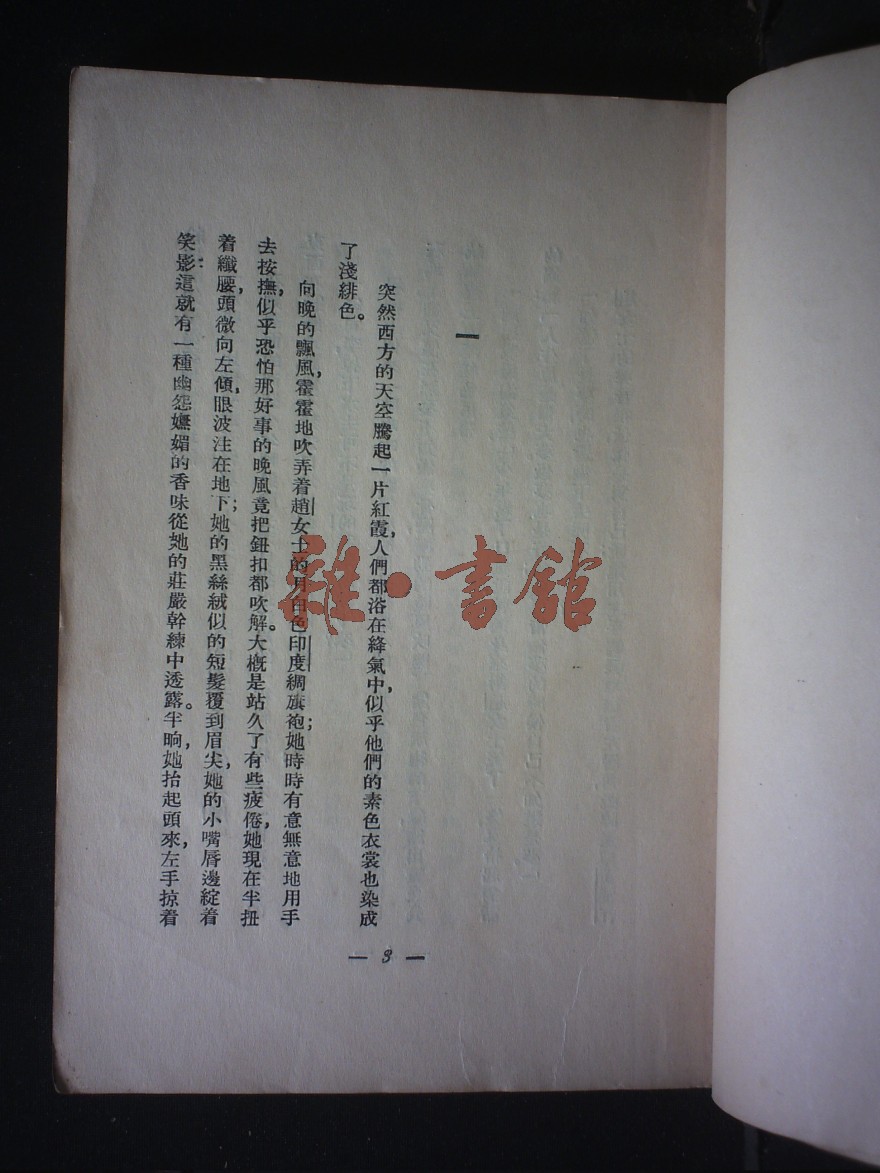 一
突然西方的天空騰起一片紅霞，人們都浴在絳氣中，似乎他們的素色衣裳也染成
了淺緋色。
向晚的飄風，霍霍地吹弄着趙女士的月白色印度綢旗袍；她時時有意無意地用手
去按撫，似乎恐怕那好事的晚風竟把鈕扣都吹解。大概是站久了有些疲倦，她現在半扭
着纖腰，頭微向左傾，眼波注在地下；她的黑絲絨似的短髮覆到眉尖，她的小嘴唇邊綻着
笑影；這就有一種幽怨嫵媚的香味從她的莊嚴幹練中透露。半晌，她抬起頭來，左手掠着
— 3 —
雜·書館